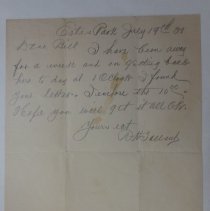 Estes Park July 19th 00
Dear Bill I have been away
for a week and on getting back
here to day at 1 O Clock I found
your letter. I enclose the 10.00
Hope you will get it all O.K.
Yours ect